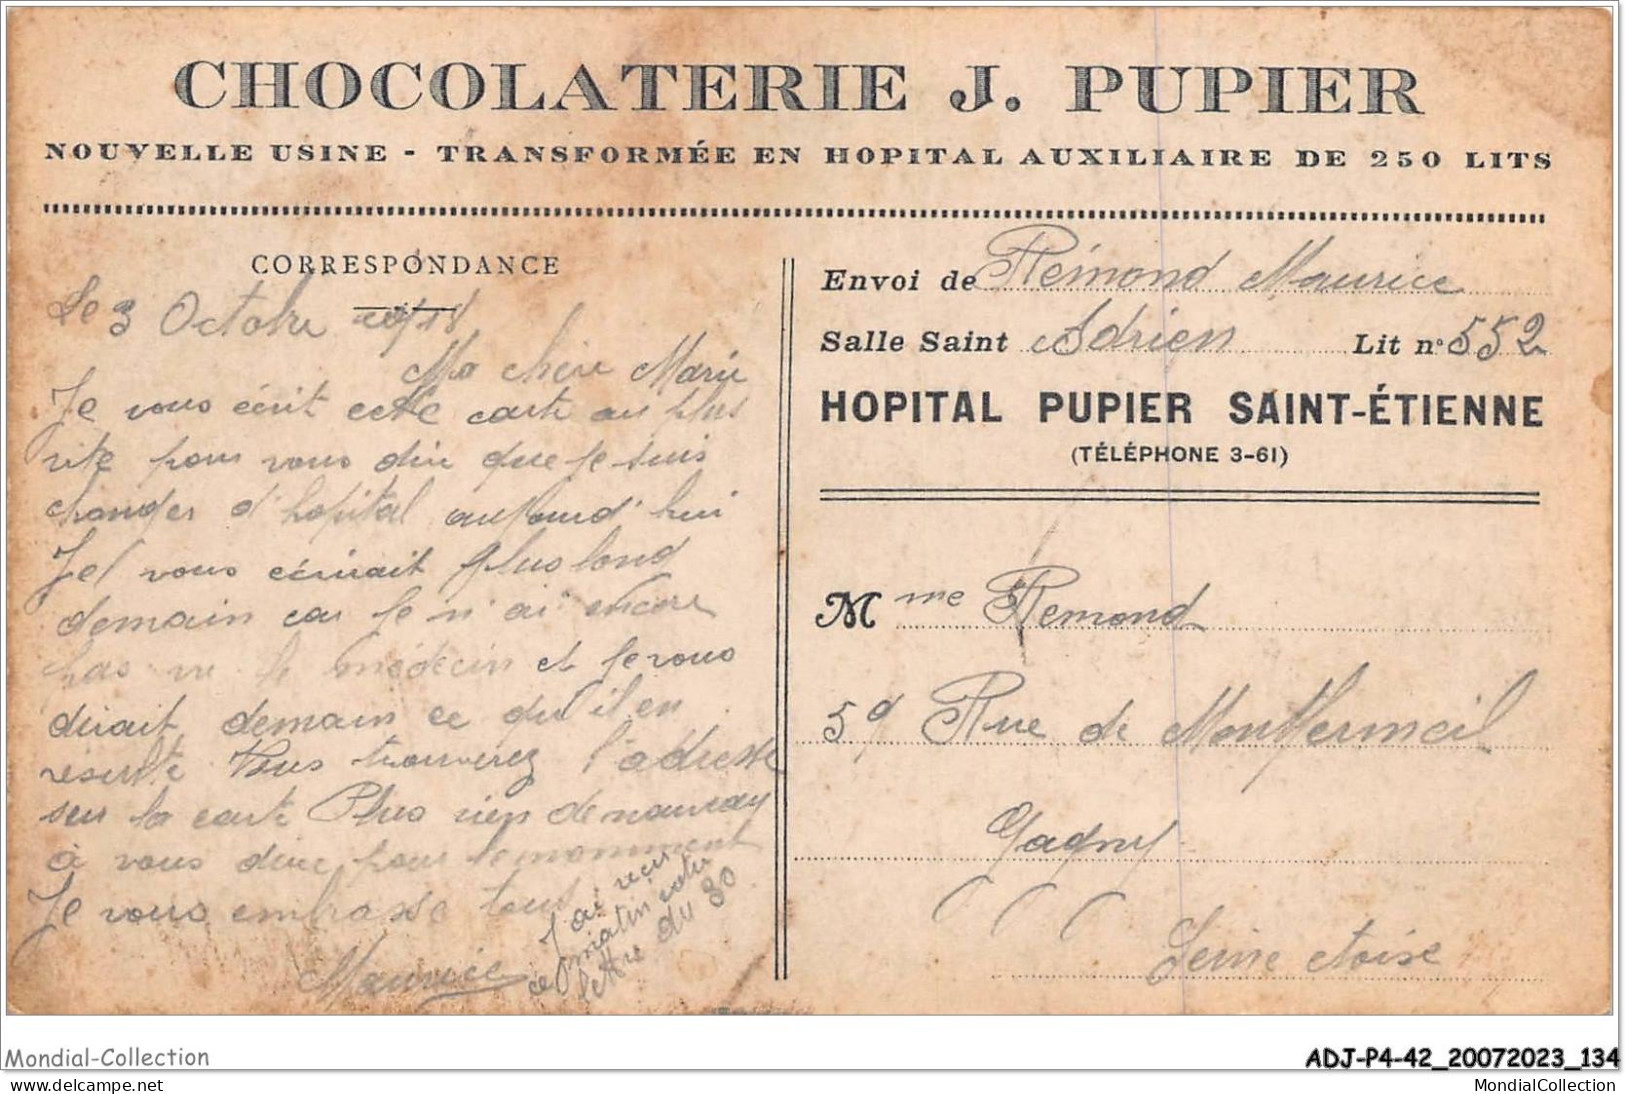 CHOCOLATERIE J. PUPIER
NOUVELLE USINE - TRANSFORMÉE EN HOPITAL AUXILIAIRE DE 250 LITS
CORRESPONDANCE
Le 3 Octobre
Ma chère Marie
Je vous écrit cette carte au plus
vite pour vous dire que je suis
changer d'hopital aujourd'hui
Je vous écrirait plus lond
demain car je n'ai encore
pas vu le médecin et je vous
dirait demain ce qu'il en
résulte Vous trouverez l'adresse
sur la carte Plus rien de nouveau
à vous dire pour le momment
Je vous embrasse tous
Maurice
J'ai reçu
ce matin votre
lettre du 30
Envoi de Rémond Maurice
Salle Saint Adrien Lit n° 552
HOPITAL PUPIER SAINT-ÉTIENNE
(TÉLÉPHONE 3-61)
Mme Remond
59 Rue de Montfermeil
Gagny
Seine etoise
Mondial-Collection
delcampe.net
ADJ-P4-42_20072023_134
MondialCollection